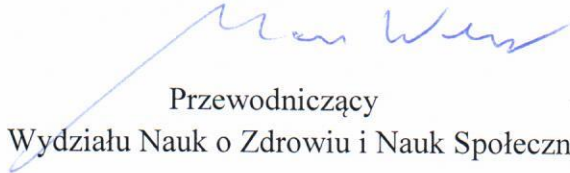 Przewodniczący
Wydziału Nauk o Zdrowiu i Nauk Społeczn